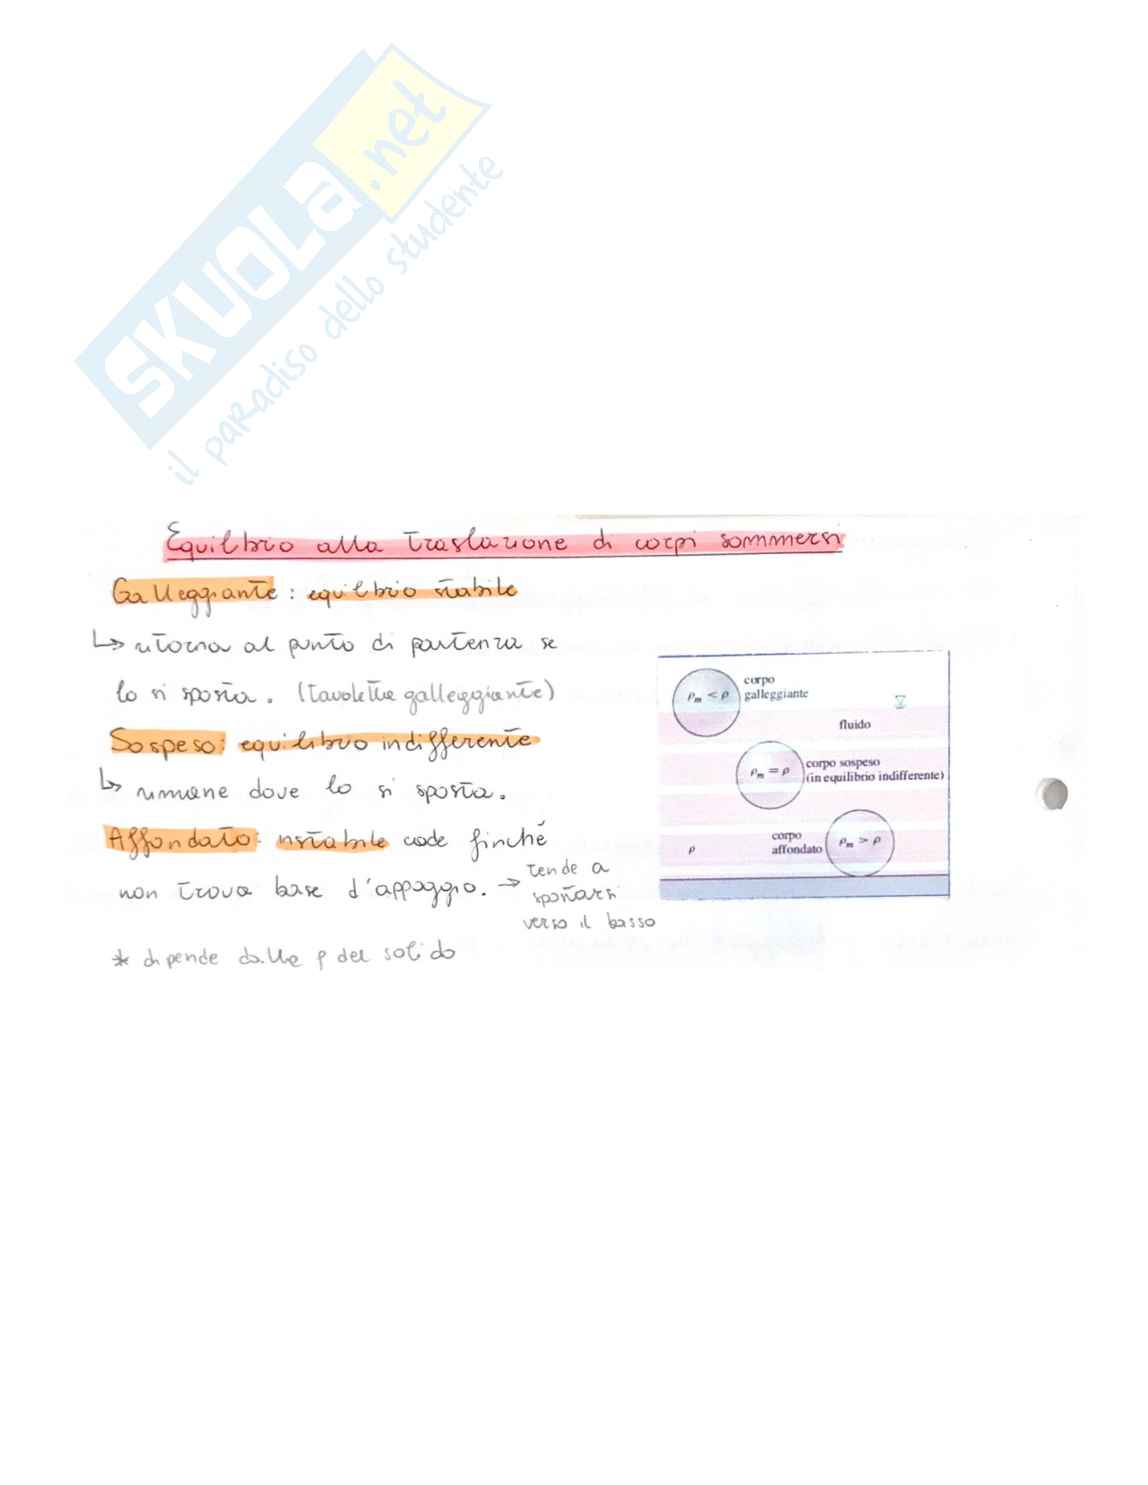 SKUOLa.net
il paradiso dello studente
Equilibrio alla traslazione di corpi sommersi
Galleggiante : equilibrio stabile
↳ ritorna al punto di partenza se
lo si sposta. (tavolette galleggiante)
Sospeso: equilibrio indifferente
↳ rimane dove lo si sposta.
Affondato: instabile cade finché
non trova base d'appoggio. → tende a
spostarsi
verso il basso
* dipende dalla ρ del solido
corpo
galleggiante
ρm < ρ
fluido
corpo sospeso
(in equilibrio indifferente)
ρm = ρ
corpo
affondato
ρm > ρ
ρ